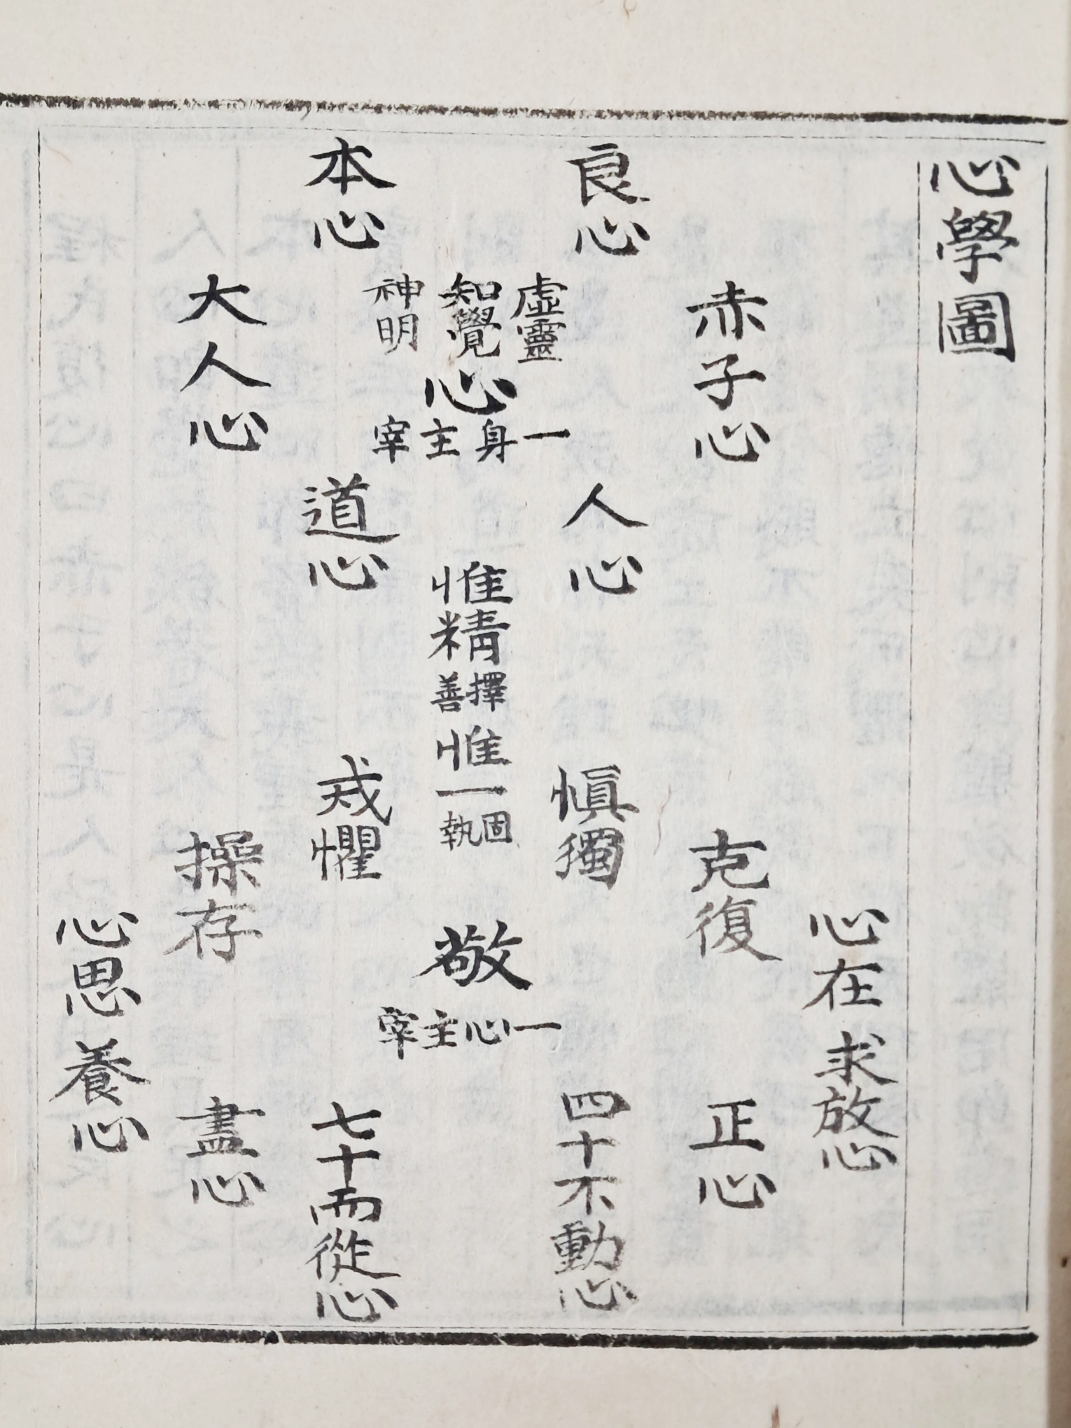 心學圖
良心
本心
赤子心
大人心
虛靈
知覺
神明
心
一身主宰
人心
道心
惟精
擇善
惟一
固執
愼獨
戒懼
克復
操存
敬
一心主宰
心在
求放心
正心
四十不動心
七十而從心
盡心
心思
養心